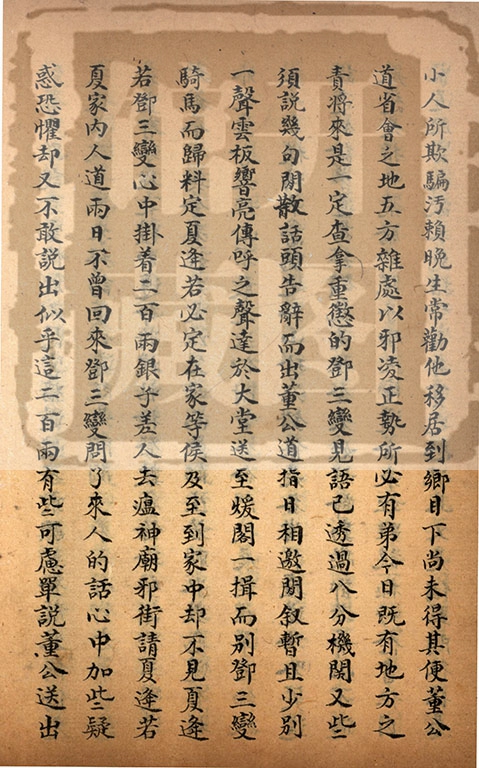 小人所欺騙污賴晚生常勸他移居到鄉目下尚未得其便董公
道省會之地五方雜處以邪凌正勢所必有弟今日既有地方之
責將來是一定查拿重懲的鄧三變見語已透過八分機関又些
須説幾句閒散話頭告辭而出董公道指日相邀閒叙暫且少別
一聲雲板響亮傳呼之聲達於大堂送至煖閣一揖而別鄧三變
騎馬而歸料定夏逢若必定在家等侯及至到家中却不見夏逢
若鄧三變心中掛着二百兩銀子差人去瘟神廟邪街請夏逢若
夏家内人道兩日不曾回來鄧三變問了來人的話心中加些疑
惑恐懼却又不敢説出似乎這二百兩有些可慮單説董公送出